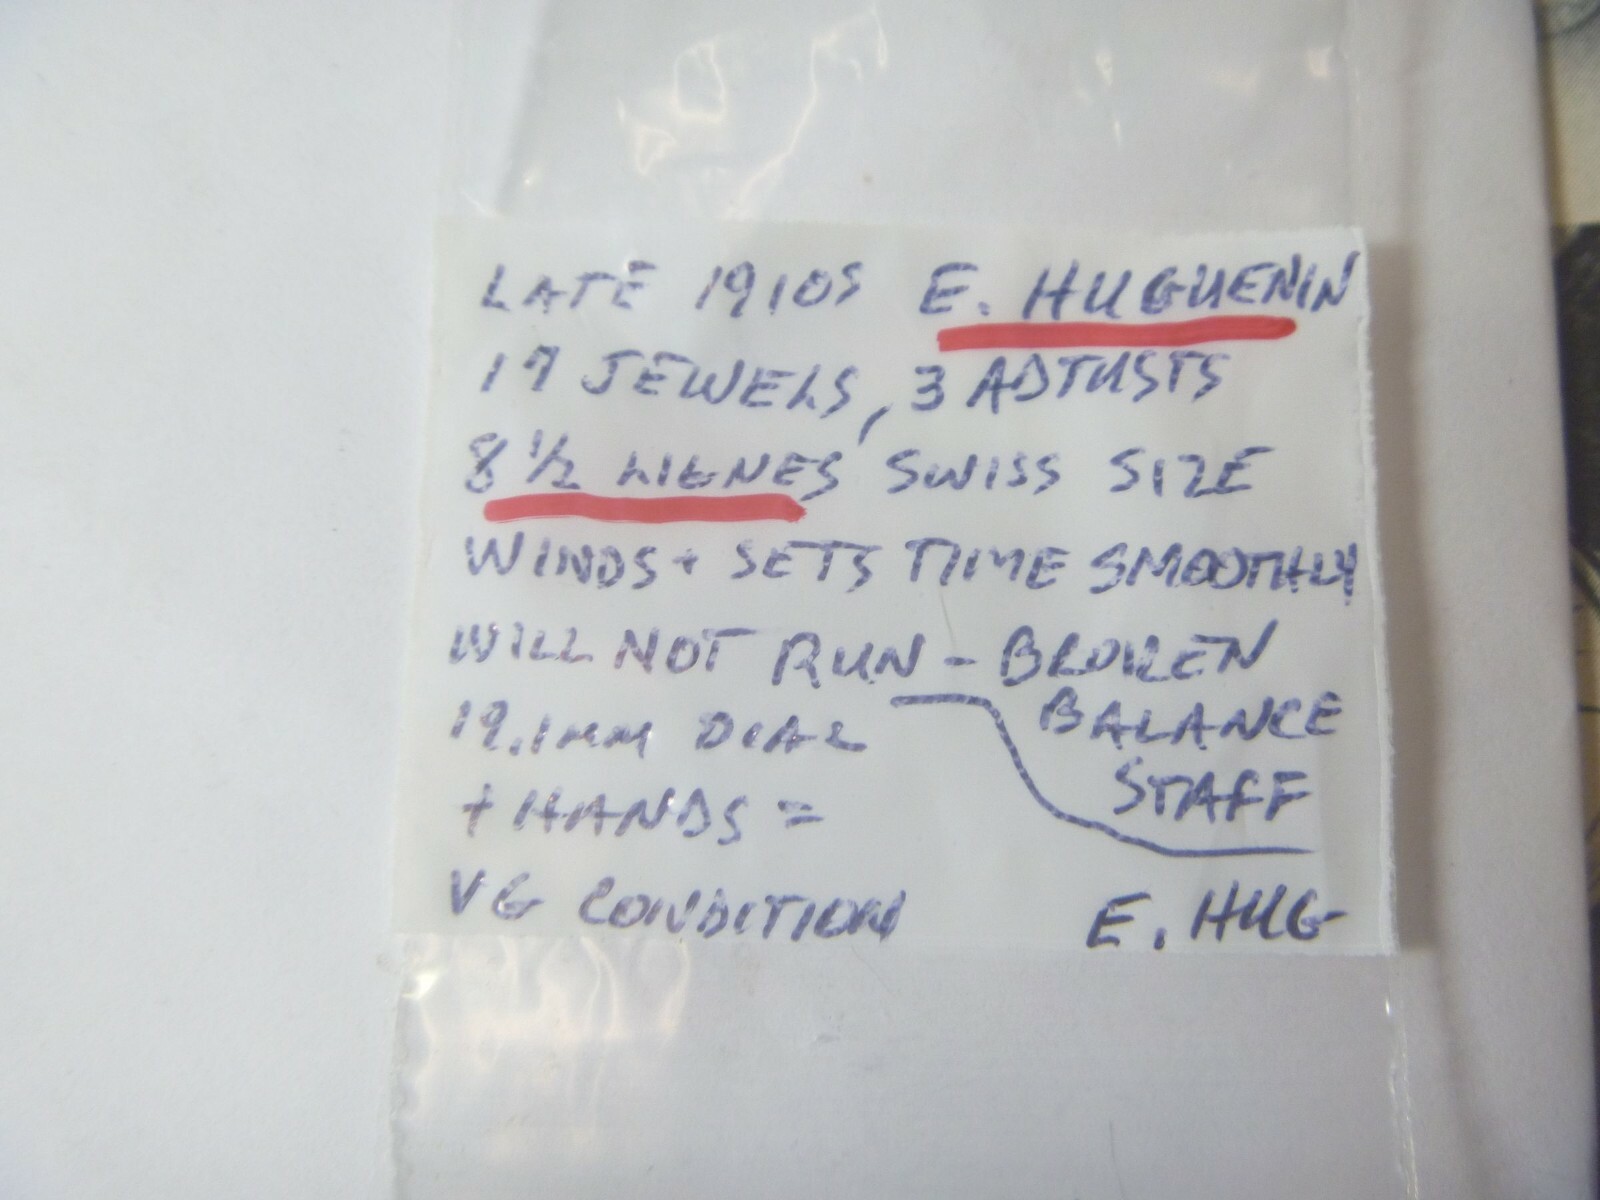 LATE 1910S E. HUGUENIN
17 JEWELS, 3 ADJUSTS
8 1/2 LIGNES SWISS SIZE
WINDS + SETS TIME SMOOTHLY
WILL NOT RUN - BROKEN
BALANCE
STAFF
19.1MM DIAL
+ HANDS =
VG CONDITION
E. HUG